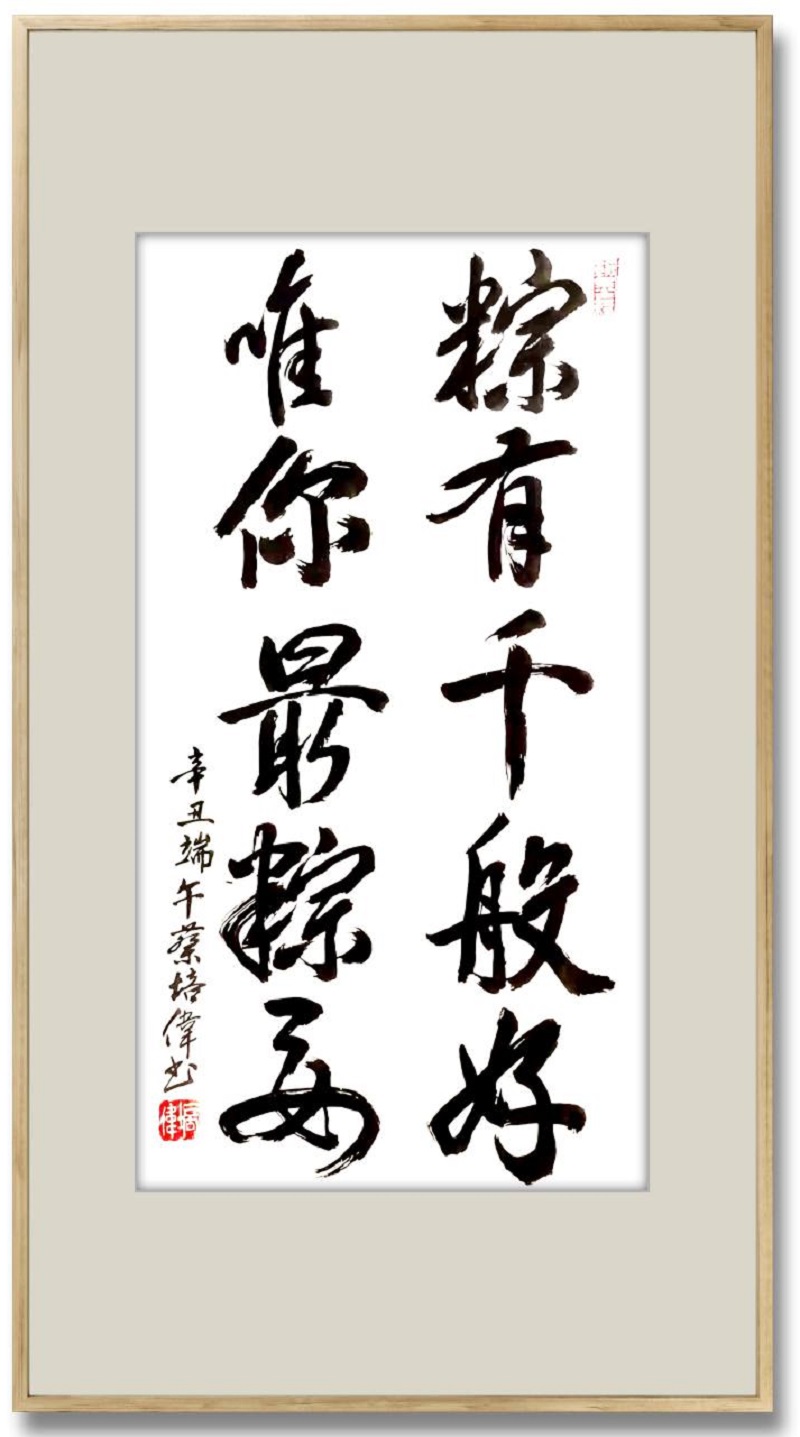 粽有千般好
唯你最粽要
辛丑端午蔡培偉书